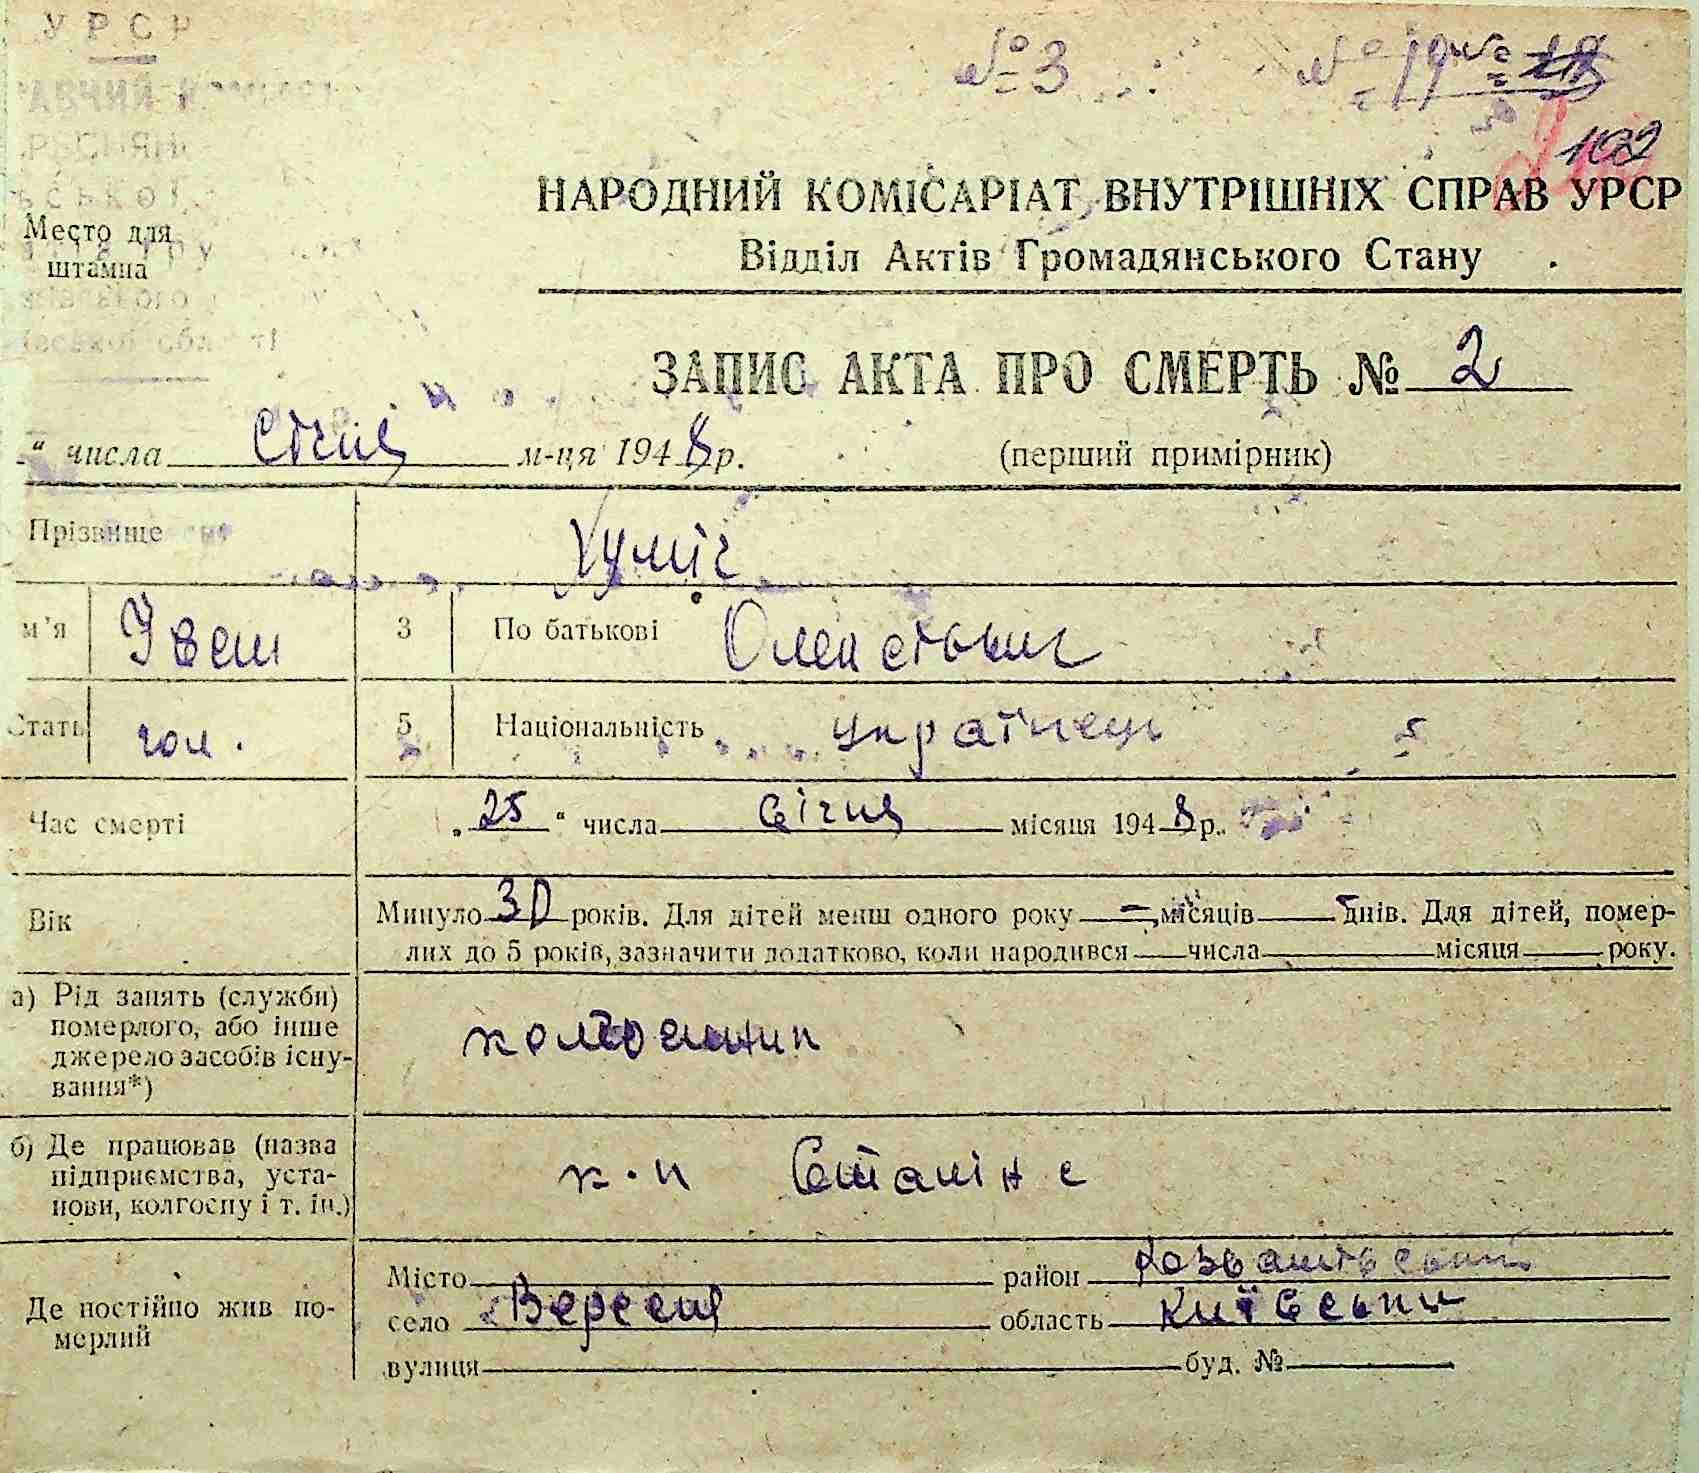 УРСР
№ 3
№ 19
102
НАРОДНИЙ КОМІСАРІАТ ВНУТРІШНІХ СПРАВ УРСР
Место для
штампа
Відділ Актів Громадянського Стану
ЗАПИС АКТА ПРО СМЕРТЬ № 2
" числа Січня м-ця 1948 р. (перший примірник)
Прізвище
м'я Іван 3 По батькові
Стать чол. 5 Національність українець
Час смерті „25" числа Січня місяця 1948 р.
Вік Минуло 30 років. Для дітей менш одного року — місяців — днів. Для дітей, помер-
лих до 5 років, зазначити додатково, коли народився числа місяця року.
а) Рід занять (служби)
померлого, або інше
джерело засобів існу-
вання*)
колгоспник
б) Де працював (назва
підприємства, уста-
нови, колгоспу і т. ін.)
к-п Сталіна
Де постійно жив по-
мерлий
Місто район
село Вересня область Київськи
вулиця буд. №